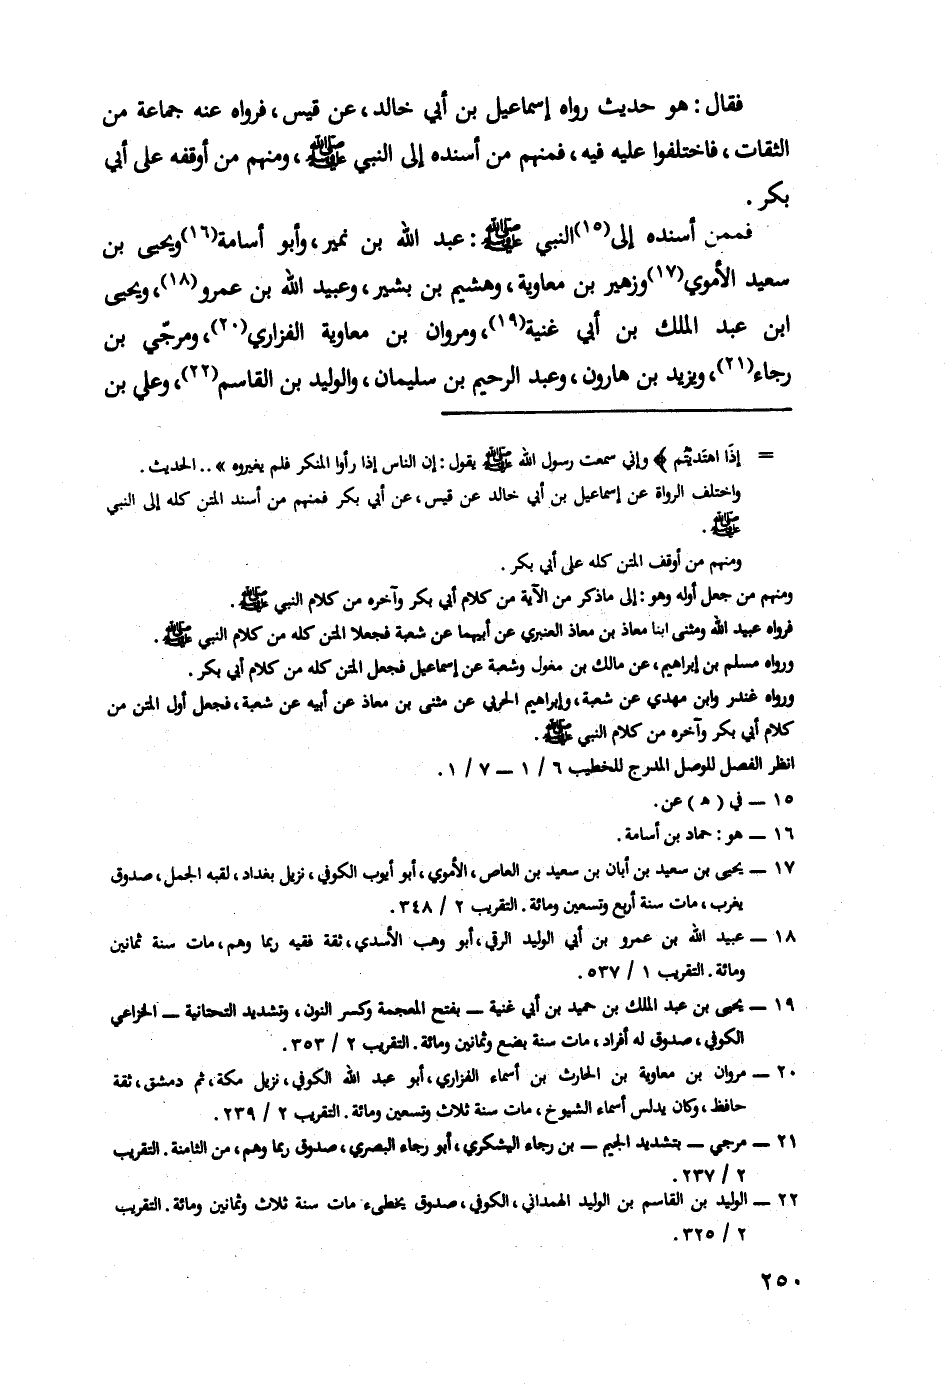 فقال : هو حديث رواه إسماعيل بن أبي خالد ، عن قيس ، فرواه عنه جماعة من
الثقات ، فاختلفوا عليه فيه ، فمنهم من أسنده إلى النبي ﷺ ، ومنهم من أوقفه على أبي
بكر .
فممن أسنده إلى(١٥) النبي ﷺ : عبد الله بن نمير ، وأبو أسامة(١٦) ويحيى بن
سعيد الأموي(١٧) وزهير بن معاوية ، وهشيم بن بشير ، وعبيد الله بن عمرو(١٨) ، ويحيى
ابن عبد الملك بن أبي غنية(١٩) ، ومروان بن معاوية الفزاري(٢٠) ، ومرجّي بن
رجاء(٢١) ، ويزيد بن هارون ، وعبد الرحيم بن سليمان ، والوليد بن القاسم(٢٢) ، وعلي بن
= إذَا اهتَديتُم ﴾ وإني سمعت رسول الله ﷺ يقول : إن الناس إذا رأوا المنكر فلم يغيروه » .. الحديث .
واختلف الرواة عن إسماعيل بن أبي خالد عن قيس ، عن أبي بكر فمنهم من أسند المتن كله إلى النبي
ﷺ .
ومنهم من أوقف المتن كله على أبي بكر .
ومنهم من جعل أوله وهو : إلى ماذكر من الآية من كلام أبي بكر وآخره من كلام النبي ﷺ .
فرواه عبيد الله ومثنى ابنا معاذ بن معاذ العنبري عن أبيهما عن شعبة فجعلا المتن كله من كلام النبي ﷺ .
ورواه مسلم بن إبراهيم ، عن مالك بن مغول وشعبة عن إسماعيل فجعل المتن كله من كلام أبي بكر .
ورواه غندر وابن مهدي عن شعبة ، وإبراهيم الحربي عن مثنى بن معاذ عن أبيه عن شعبة ، فجعل أول المتن من
كلام أبي بكر وآخره من كلام النبي ﷺ .
انظر الفصل للوصل المدرج للخطيب ٦ / ١ ــ ٧ / ١ .
١٥ ــ في ( هـ ) عن .
١٦ ــ هو : حماد بن أسامة .
١٧ ــ يحيى بن سعيد بن أبان بن سعيد بن العاص ، الأموي ، أبو أيوب الكوفي ، نزيل بغداد ، لقبه الجمل ، صدوق
يغرب ، مات سنة أربع وتسعين ومائة . التقريب ٢ / ٣٤٨ .
١٨ ــ عبيد الله بن عمرو بن أبي الوليد الرقي ، أبو وهب الأسدي ، ثقة فقيه ربما وهم ، مات سنة ثمانين
ومائة . التقريب ١ / ٥٣٧ .
١٩ ــ يحيى بن عبد الملك بن حميد بن أبي غنية ــ بفتح المعجمة وكسر النون ، وتشديد التحتانية ــ الخزاعي
الكوفي ، صدوق له أفراد ، مات سنة بضع وثمانين ومائة . التقريب ٢ / ٣٥٣ .
٢٠ ــ مروان بن معاوية بن الحارث بن أسماء الفزاري ، أبو عبد الله الكوفي ، نزيل مكة ، ثم دمشق ، ثقة
حافظ ، وكان يدلس أسماء الشيوخ ، مات سنة ثلاث وتسعين ومائة . التقريب ٢ / ٢٣٩ .
٢١ ــ مرجي ــ بتشديد الجيم ــ بن رجاء اليشكري ، أبو رجاء البصري ، صدوق ربما وهم ، من الثامنة . التقريب
٢ / ٢٣٧ .
٢٢ ــ الوليد بن القاسم بن الوليد الهمداني ، الكوفي ، صدوق يخطىء مات سنة ثلاث وثمانين ومائة . التقريب
٢ / ٣٢٥ .
٢٥٠